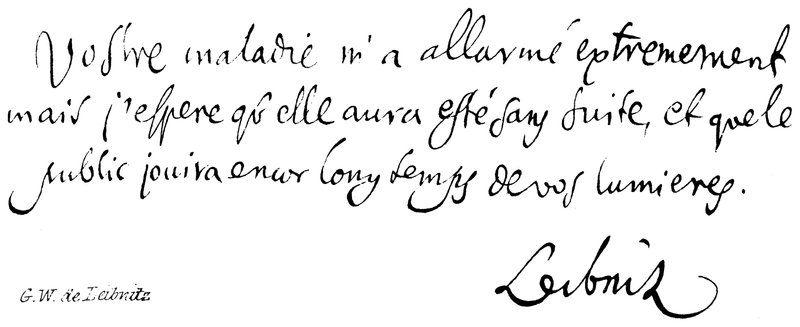 Vostre maladie m'a allarmé extremement
mais j'espere qu'elle aura esté sans suite, et que le
public jouira encor long temps de vos lumieres.
Leibniz
G. W. de Leibnitz